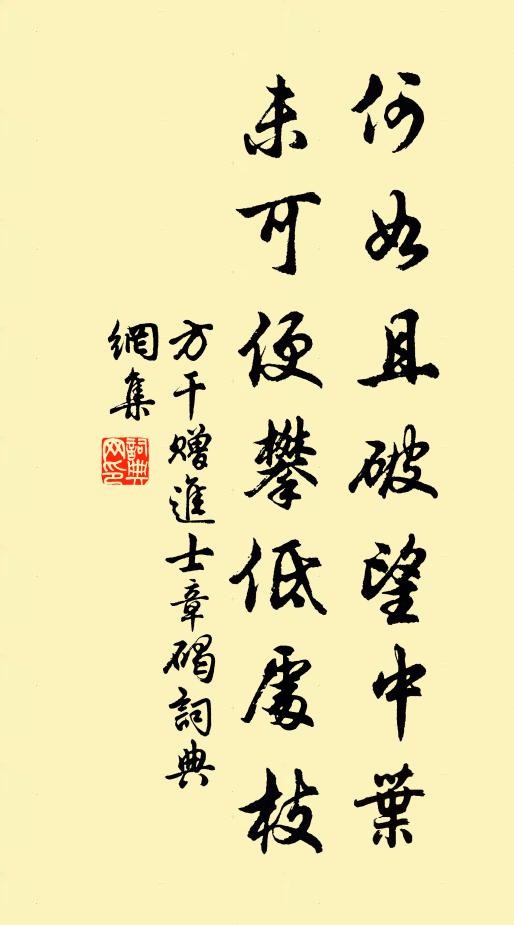 何如且破望中葉
未可便攀低處枝
方干贈進士章碣詞典
網集
詞典
網印